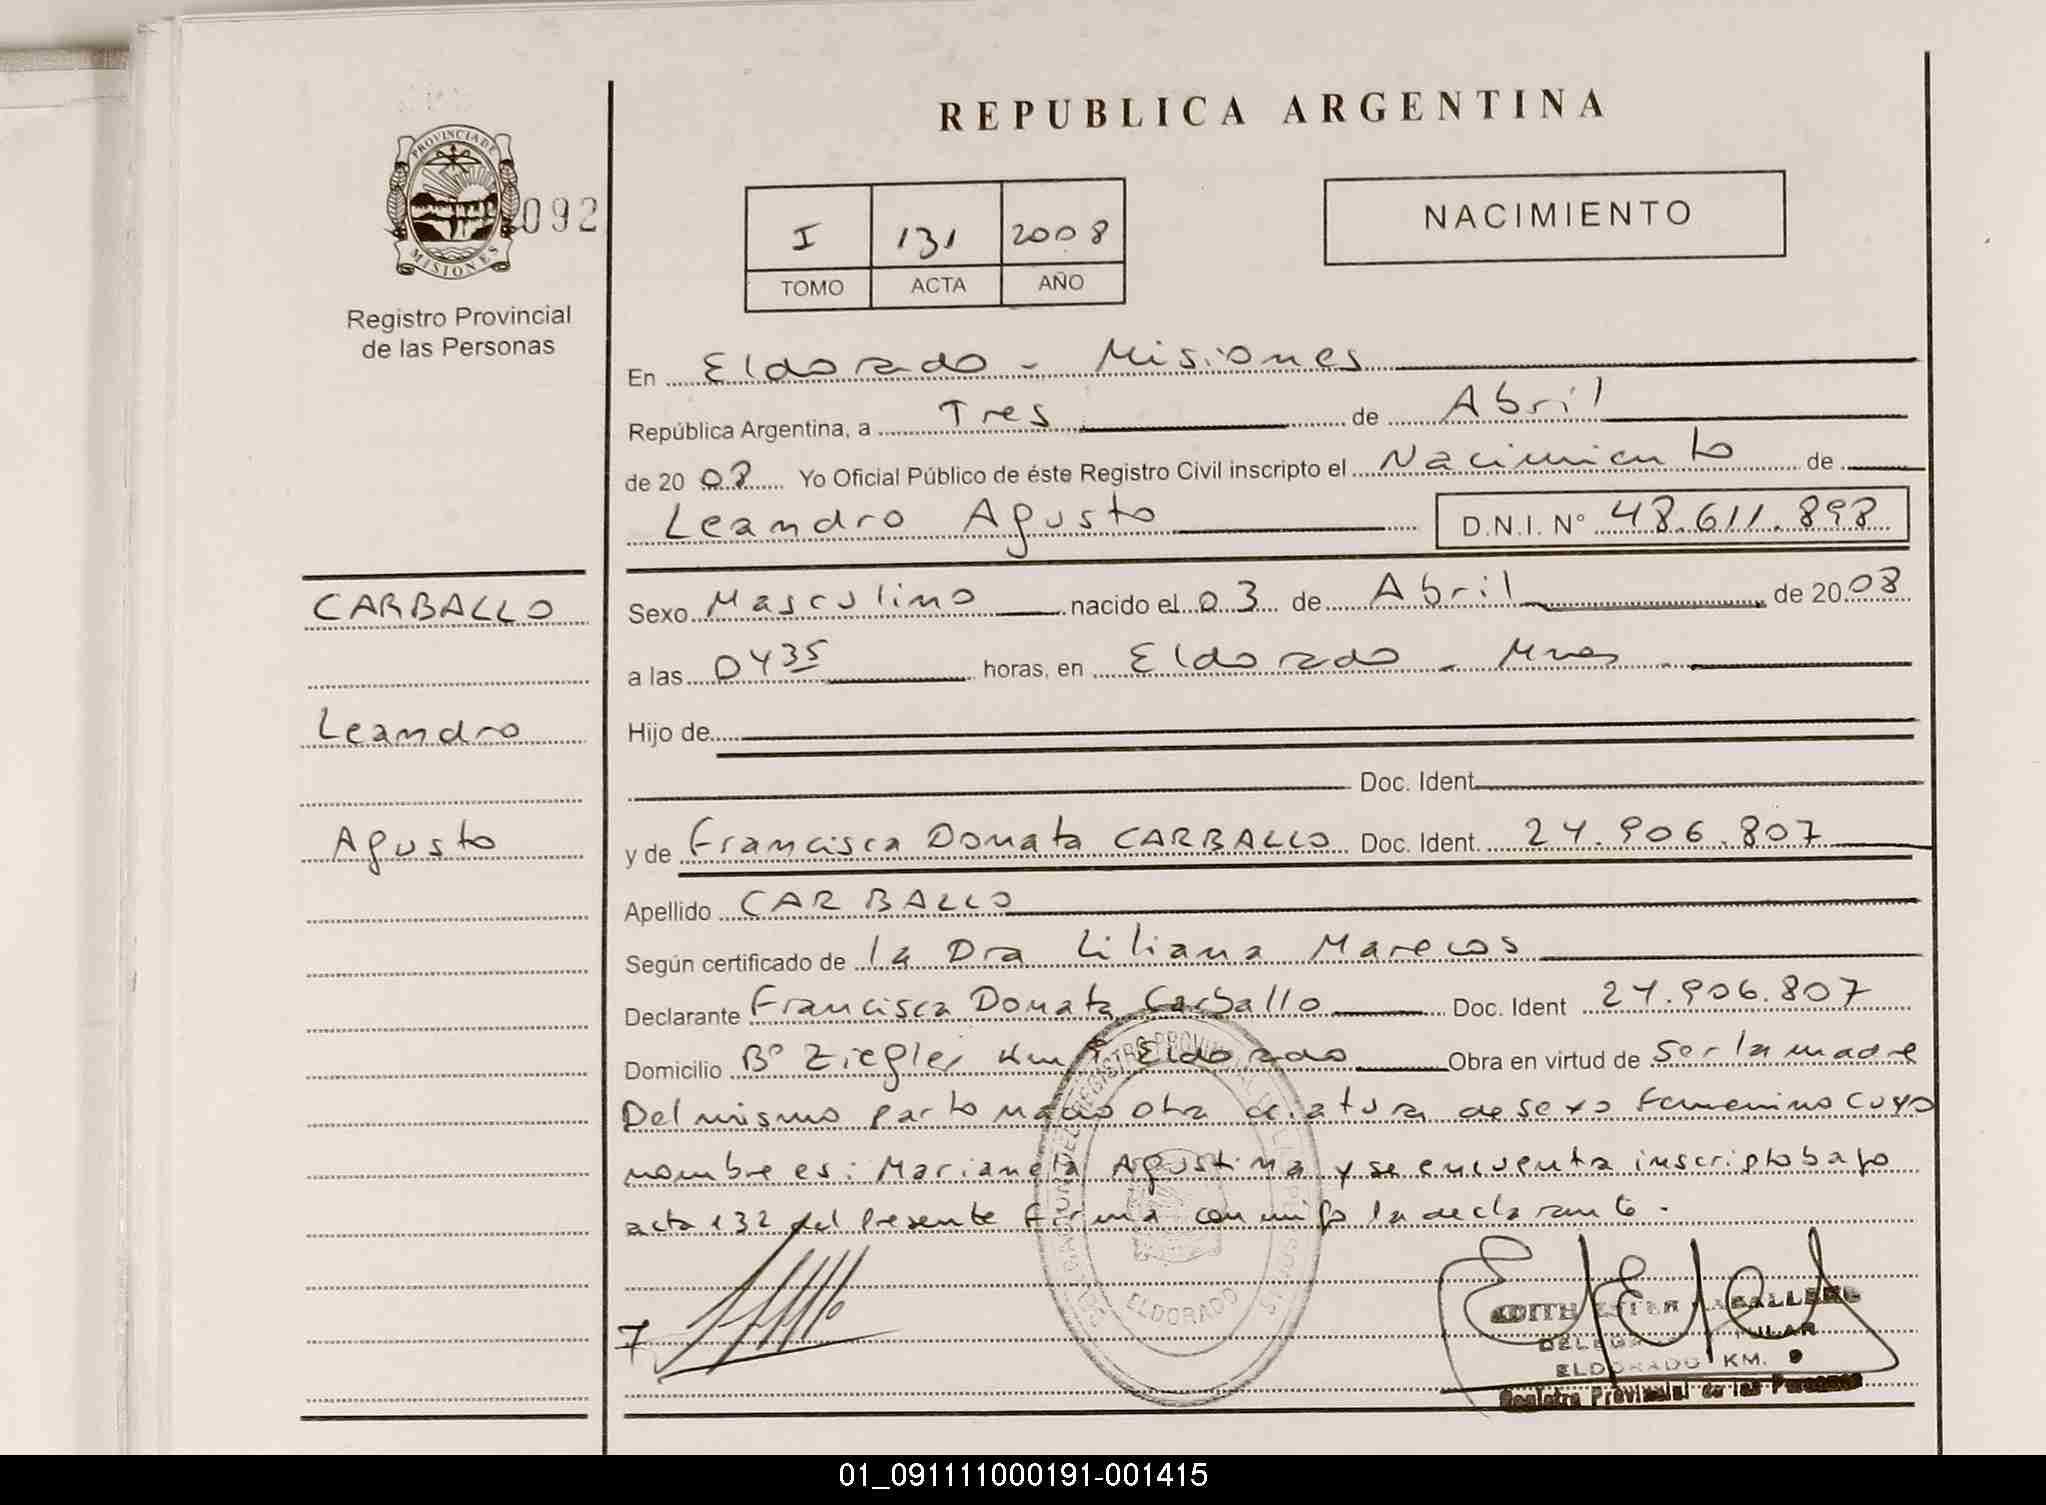 REPUBLICA ARGENTINA
PROVINCIA DE
MISIONES
092
Registro Provincial
de las Personas
I 131 2008
TOMO ACTA AÑO
NACIMIENTO
En Eldorado - Misiones
República Argentina, a Tres de Abril
de 20 08 Yo Oficial Público de éste Registro Civil inscripto el Nacimiento de
Leandro Agusto D.N.I. N° 48.611.898
CARBALLO
Leandro
Agusto
Sexo Masculino nacido el 03 de Abril de 20 08
a las 0435 horas, en Eldorado - Mnes -
Hijo de
Doc. Ident.
y de Francisca Donata CARBALLO Doc. Ident. 24.906.807
Apellido CARBALLO
Según certificado de la Dra Liliana Marecos
Declarante Francisca Donata Carballo Doc. Ident 24.906.807
Domicilio B° Ziegler Km Eldorado Obra en virtud de Ser la madre
Del mismo parto nacio otra criatura de sexo Femenino cuyo
nombre es: Mariangela Agustina y se encuentra inscripto bajo
acta 132 del presente firma conmigo la declarante.
REGISTRO PROVINCIAL DE LAS PERSONAS
ELDORADO
EDITH ESTER CABALLERO
ELDORADO KM. 9
Registro Provincial de las Personas
01_091111000191-001415